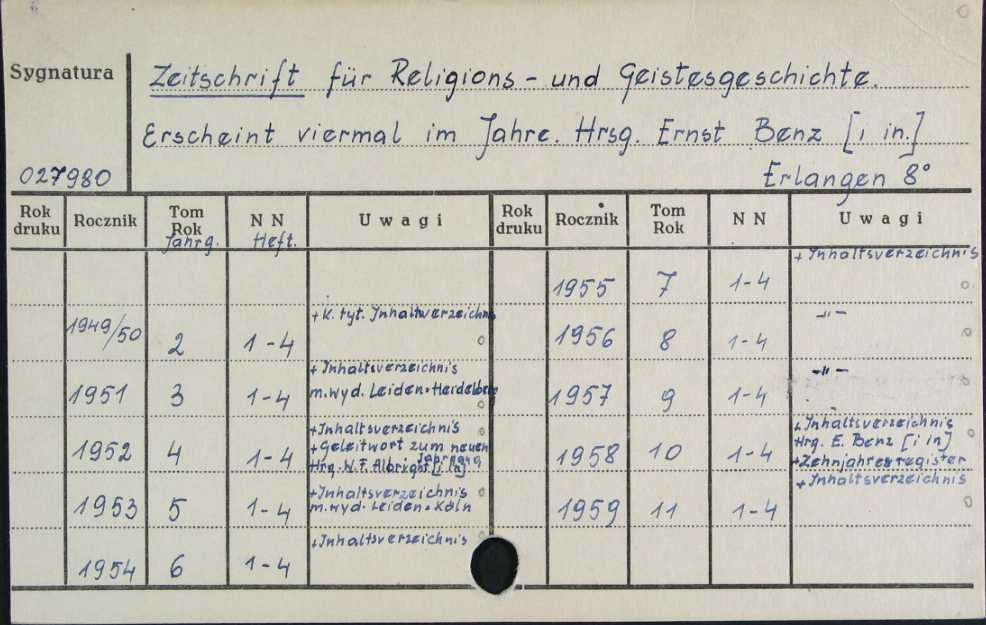 Sygnatura
Zeitschrift für Religions - und Geistesgeschichte.
Erscheint viermal im Jahre. Hrsg. Ernst Benz [i in.]
027980
Erlangen 8°
Rok druku Rocznik Tom Rok Jahrg. N N Heft. Uwagi
1949/50 2 1-4 + K. tyt. Inhaltverzeichnis
1951 3 1-4 + Inhaltsverzeichnis
m.wyd. Leiden. Heidelberg
1952 4 1-4 + Inhaltsverzeichnis
+ Geleitwort zum neuen
Jahrgang
Hrg. W.F. Albright [i in]
1953 5 1-4 + Inhaltsverzeichnis
m.wyd. Leiden. Köln
1954 6 1-4 + Inhaltsverzeichnis
Rok druku Rocznik Tom Rok N N Uwagi
1955 7 1-4 + Inhaltsverzeichnis
1956 8 1-4 -"-
1957 9 1-4 -"-
1958 10 1-4 + Inhaltsverzeichnis
Hrg. E. Benz [i in]
+ Zehnjahresregister
1959 11 1-4 + Inhaltsverzeichnis